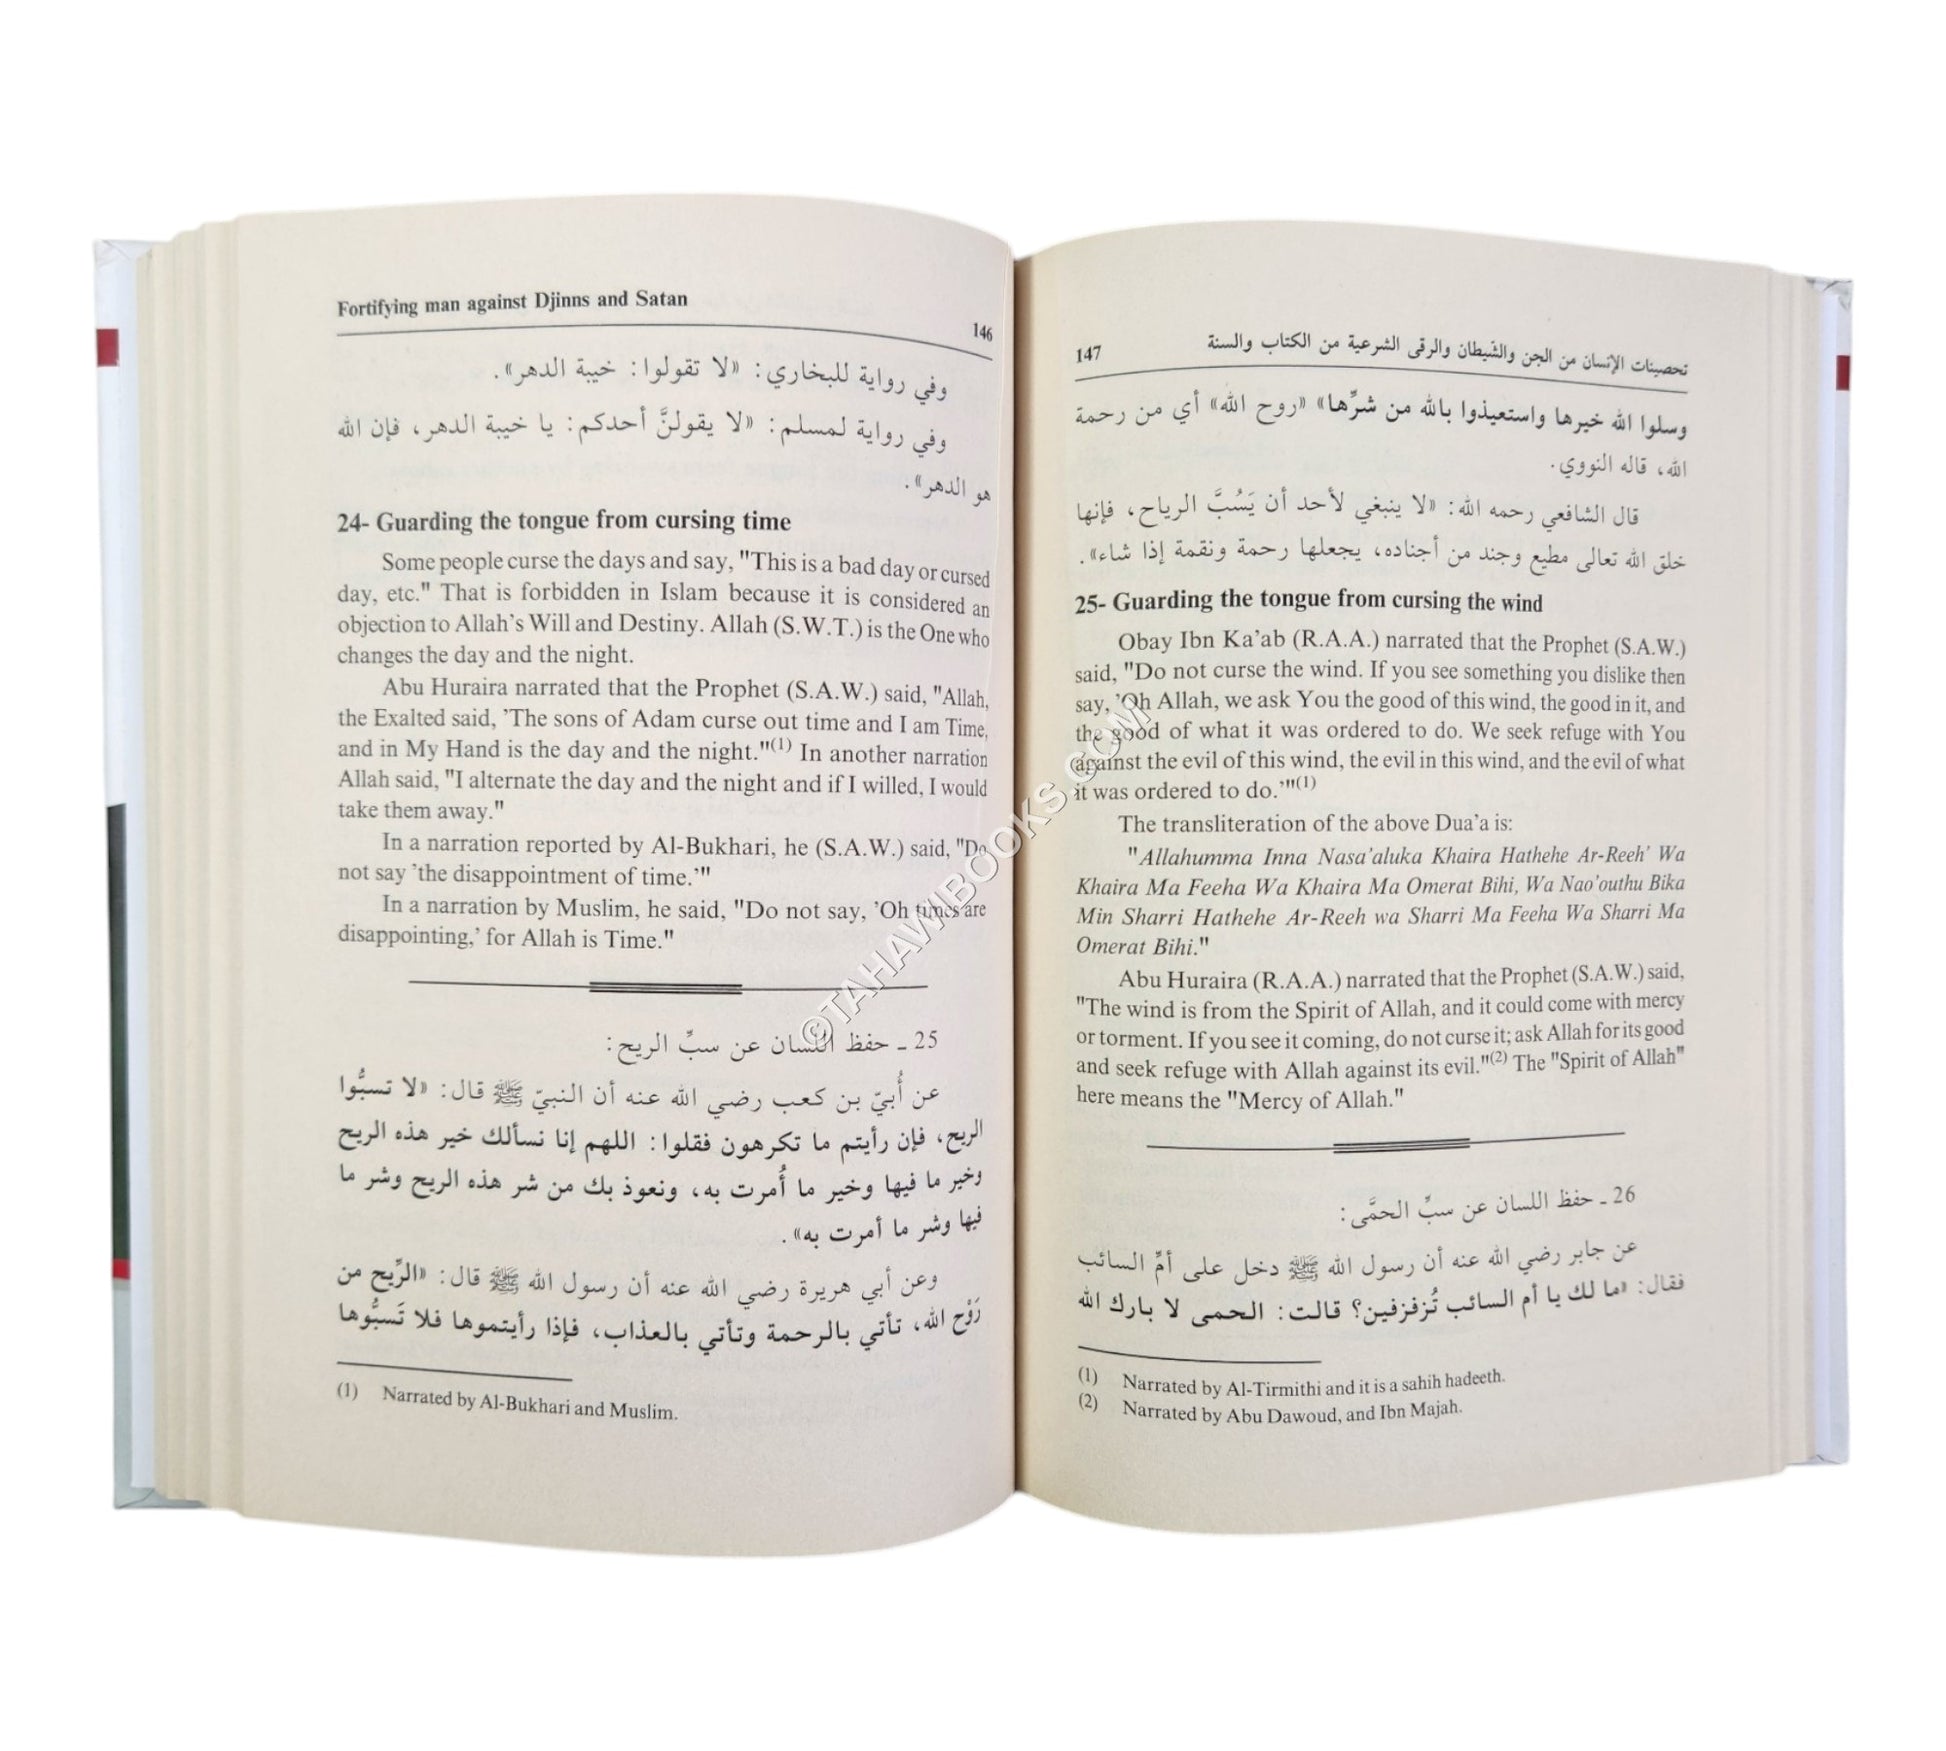 Fortifying man against Djinns and Satan
146
وفي رواية للبخاري: «لا تقولوا: خيبة الدهر».
وفي رواية لمسلم: «لا يقولنَّ أحدكم: يا خيبة الدهر، فإن الله
هو الدهر».
24- Guarding the tongue from cursing time
Some people curse the days and say, "This is a bad day or cursed
day, etc." That is forbidden in Islam because it is considered an
objection to Allah's Will and Destiny. Allah (S.W.T.) is the One who
changes the day and the night.
Abu Huraira narrated that the Prophet (S.A.W.) said, "Allah,
the Exalted said, 'The sons of Adam curse out time and I am Time,
and in My Hand is the day and the night."(1) In another narration
Allah said, "I alternate the day and the night and if I willed, I would
take them away."
In a narration reported by Al-Bukhari, he (S.A.W.) said, "Do
not say 'the disappointment of time.'"
In a narration by Muslim, he said, "Do not say, 'Oh times are
disappointing,' for Allah is Time."
25 ـ حفظ اللسان عن سبِّ الريح:
عن أُبيّ بن كعب رضي الله عنه أن النبيّ ﷺ قال: «لا تسبُّوا
الريح، فإن رأيتم ما تكرهون فقلوا: اللهم إنا نسألك خير هذه الريح
وخير ما فيها وخير ما أُمرت به، ونعوذ بك من شر هذه الريح وشر ما
فيها وشر ما أمرت به».
وعن أبي هريرة رضي الله عنه أن رسول الله ﷺ قال: «الرِّيح من
رَوْح الله، تأتي بالرحمة وتأتي بالعذاب، فإذا رأيتموها فلا تَسبُّوها
(1) Narrated by Al-Bukhari and Muslim.
147
تحصينات الإنسان من الجن والشَيطان والرقى الشرعية من الكتاب والسنة
وسلوا الله خيرها واستعيذوا بالله من شرِّها» «روح الله» أي من رحمة
الله، قاله النووي.
قال الشافعي رحمه الله: «لا ينبغي لأحد أن يَسُبَّ الرياح، فإنها
خلق الله تعالى مطيع وجند من أجناده، يجعلها رحمة ونقمة إذا شاء».
25- Guarding the tongue from cursing the wind
Obay Ibn Ka'ab (R.A.A.) narrated that the Prophet (S.A.W.)
said, "Do not curse the wind. If you see something you dislike then
say, 'Oh Allah, we ask You the good of this wind, the good in it, and
the good of what it was ordered to do. We seek refuge with You
against the evil of this wind, the evil in this wind, and the evil of what
it was ordered to do.'"(1)
The transliteration of the above Dua'a is:
"Allahumma Inna Nasa'aluka Khaira Hathehe Ar-Reeh' Wa
Khaira Ma Feeha Wa Khaira Ma Omerat Bihi, Wa Nao'outhu Bika
Min Sharri Hathehe Ar-Reeh wa Sharri Ma Feeha Wa Sharri Ma
Omerat Bihi."
Abu Huraira (R.A.A.) narrated that the Prophet (S.A.W.) said,
"The wind is from the Spirit of Allah, and it could come with mercy
or torment. If you see it coming, do not curse it; ask Allah for its good
and seek refuge with Allah against its evil."(2) The "Spirit of Allah"
here means the "Mercy of Allah."
26 ـ حفظ اللسان عن سبِّ الحمَّى:
عن جابر رضي الله عنه أن رسول الله ﷺ دخل على أمِّ السائب
فقال: «ما لك يا أم السائب تُزفزفين؟ قالت: الحمى لا بارك الله
(1) Narrated by Al-Tirmithi and it is a sahih hadeeth.
(2) Narrated by Abu Dawoud, and Ibn Majah.
©TAHAWIBOOKS.COM